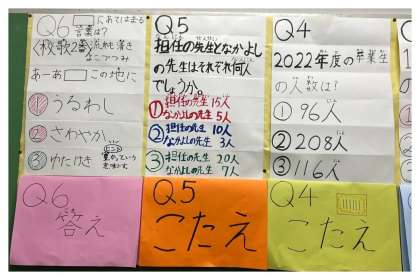 Q6 □にあてはまる
言葉は?
〈校歌2番〉流れも清き
なこつつみ
あーあ□この地に
①うるわし
②さわやか
③ゆたけき
ヒント
豊かという
意味だよ
Q6
答え
Q5
担任の先生となかよし
の先生はそれぞれ何人
でしょうか。
①担任の先生 15人
なかよしの先生 5人
②担任の先生 10人
なかよしの先生 3人
③担任の先生 20人
なかよしの先生 7人
Q5
こたえ
Q4
2022年度の卒業生
の人数は?
①96人
②208人
③116人
Q4
こたえ